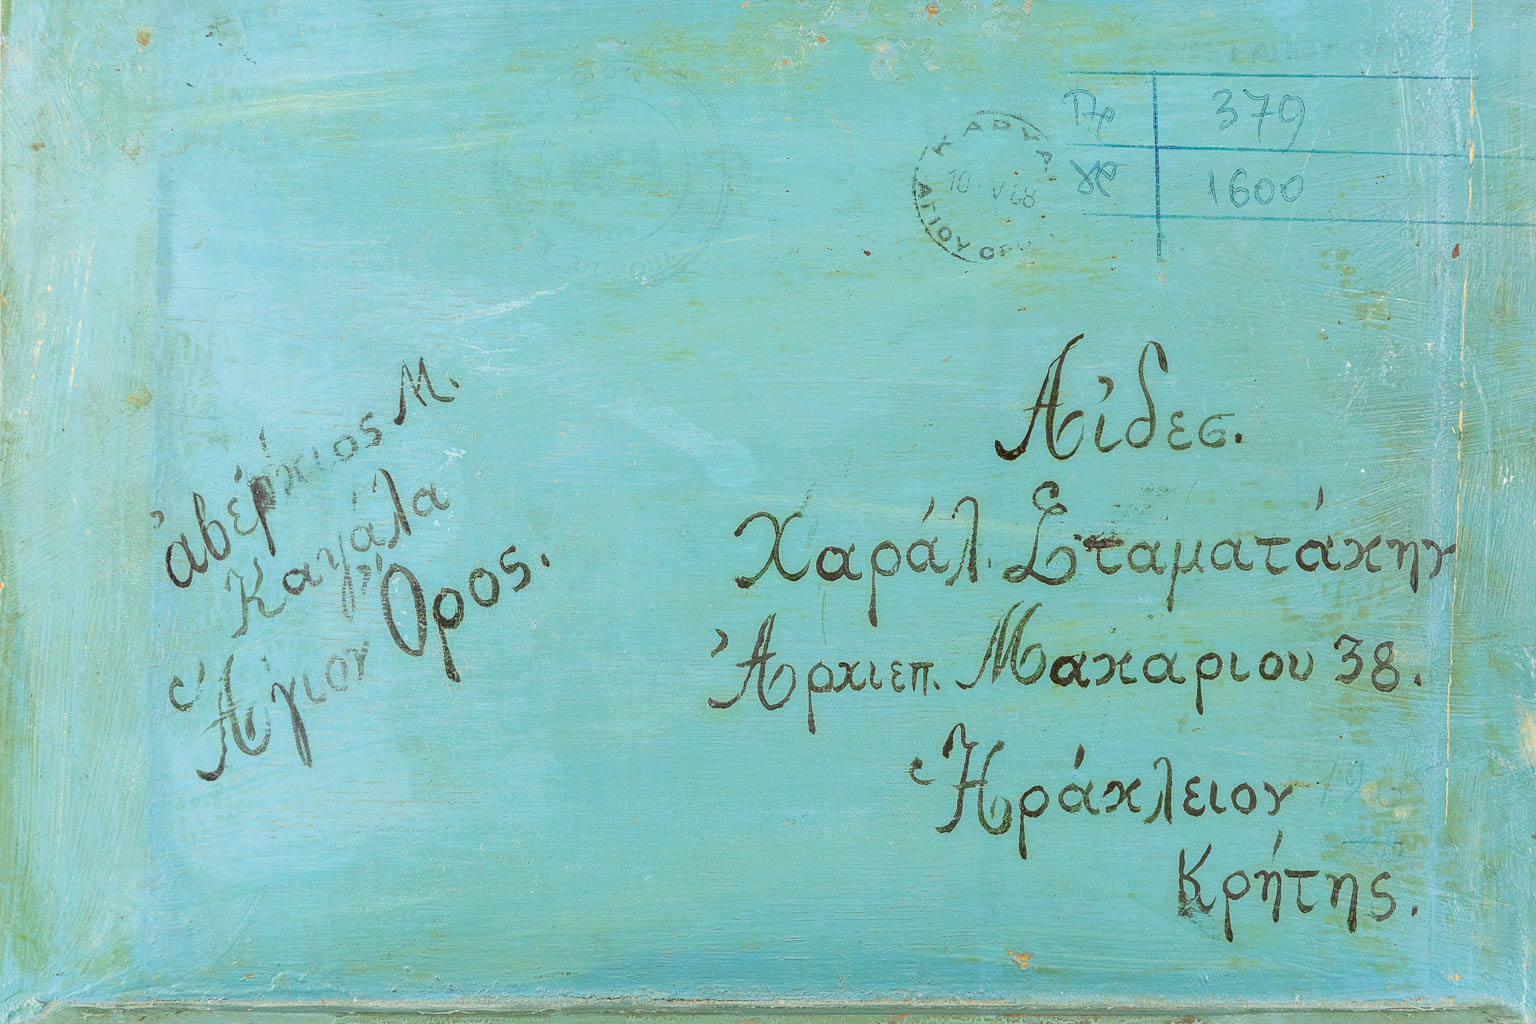 Πρ 379
χρ 1600
ΚΑΡΥΑΙ
10 V 68
ΑΓΙΟΥ ΟΡΟ
Αἰδεσ.
Χαράλ. Σταματάκην
Ἀρχιεπ. Μακαριου 38.
Ἡράκλειον
Κρήτης.
ἀβέρκιος Μ.
Καψάλα
Ἅγιον Ὄρος.